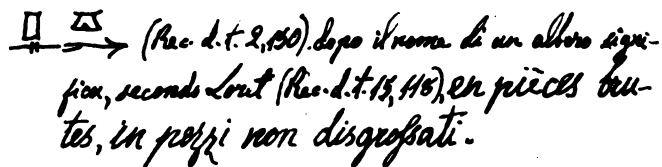 (Rec. d. t. 2,130) dopo il nome di un albero signi-
fica, secondo Loret (Rec. d. t. 15, 118), en pièces bru-
tes, in pezzi non disgrossati.